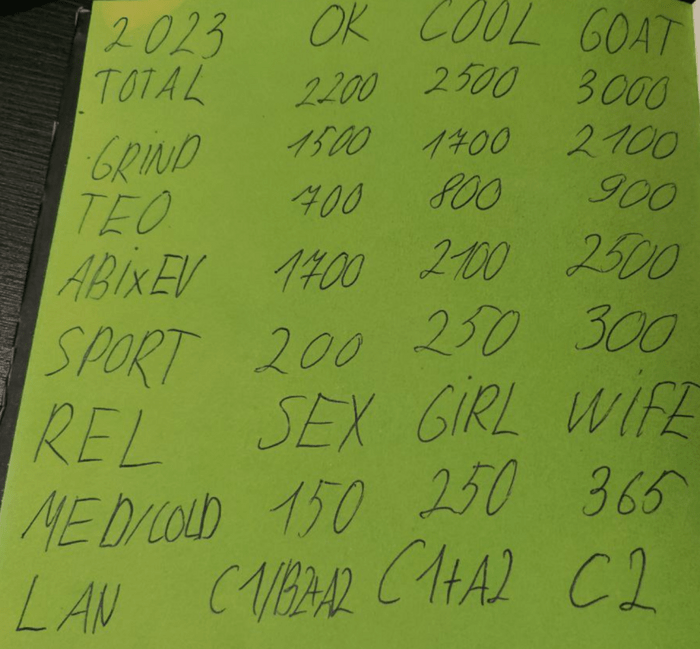 2023 OK COOL GOAT
TOTAL 2200 2500 3000
GRIND 1500 1700 2100
TEO 700 800 900
ABIxEV 1700 2100 2500
SPORT 200 250 300
REL SEX GIRL WIFE
MED/COLD 150 250 365
LAN C1/B2+A2 C1+A2 C2